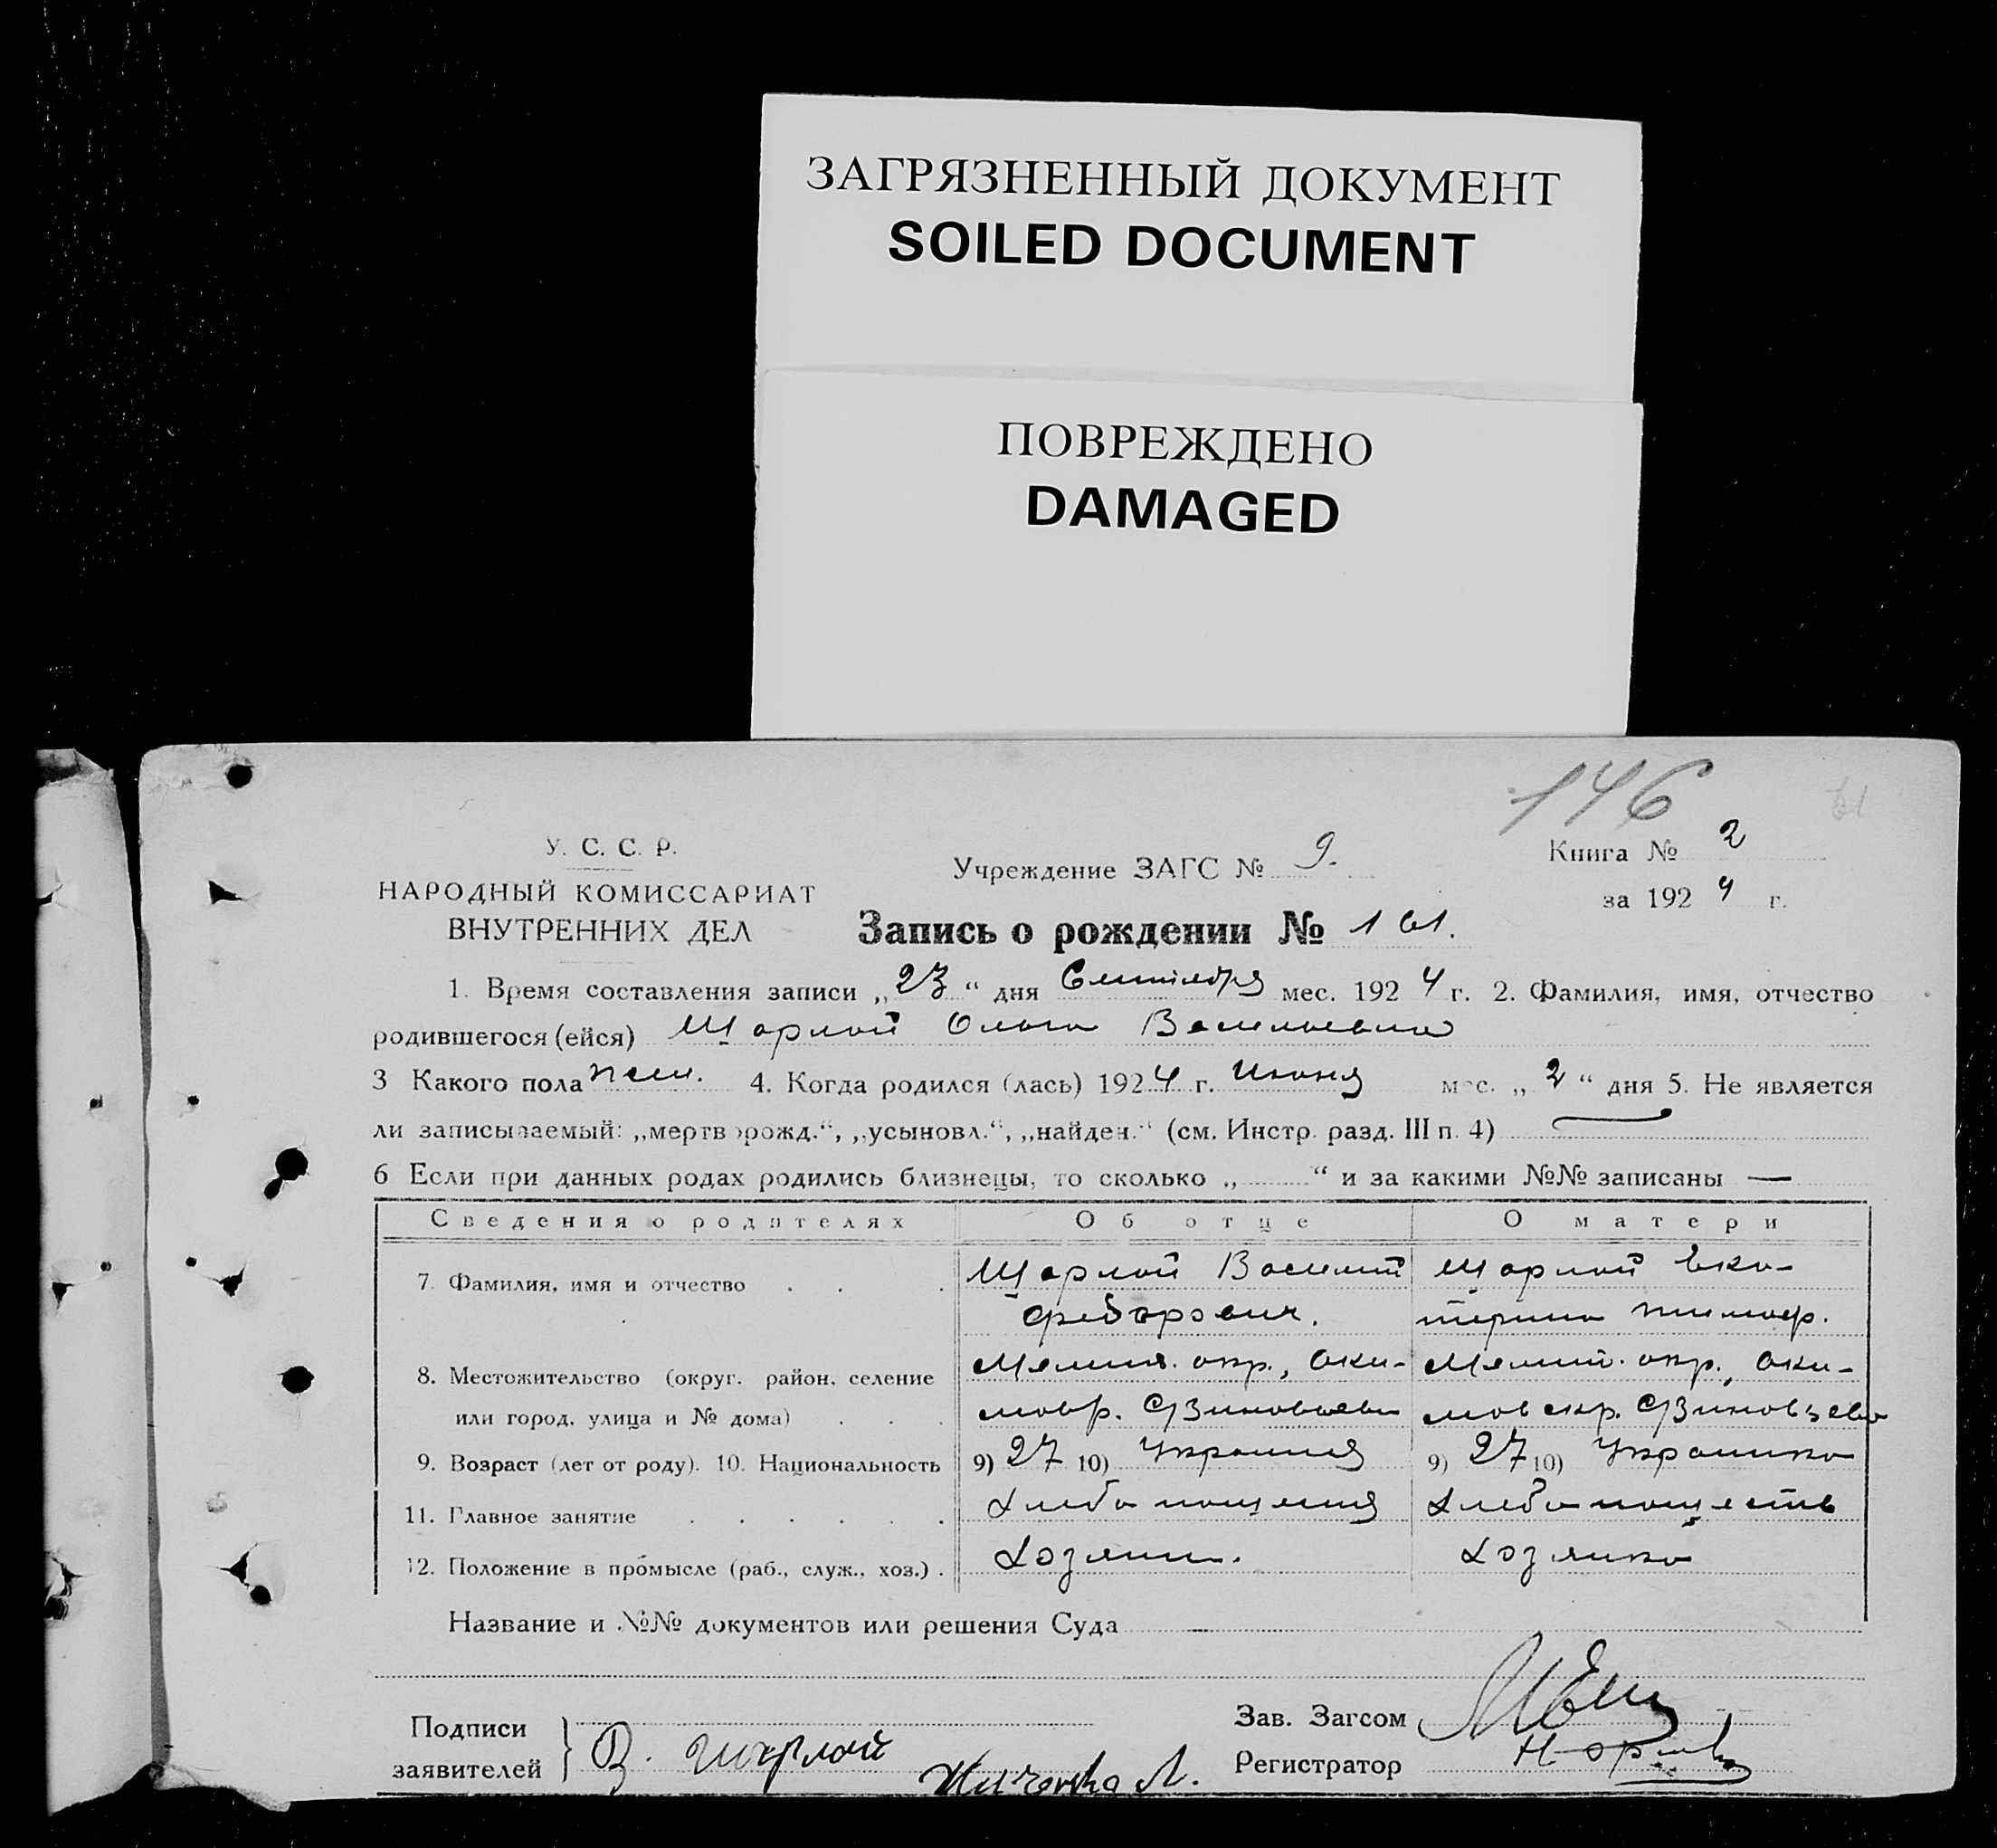 ЗАГРЯЗНЕННЫЙ ДОКУМЕНТ
SOILED DOCUMENT
ПОВРЕЖДЕНО
DAMAGED
146 61
У. С. С. Р.
НАРОДНЫЙ КОМИССАРИАТ
ВНУТРЕННИХ ДЕЛ
Учреждение ЗАГС № 9.
Книга № 2
за 1924 г.
Запись о рождении № 161.
1. Время составления записи „23“ дня Сентября мес. 1924 г. 2. Фамилия, имя, отчество
родившегося (ейся) Шарлай Ольга Васильевна
3 Какого пола жен. 4. Когда родился (лась) 1924 г. Июня мес. „2“ дня 5. Не является
ли записываемый: „мертворожд.“, „усыновл.“, „найден.“ (см. Инстр. разд. III п. 4)
6 Если при данных родах родились близнецы, то сколько „ “ и за какими №№ записаны —
Сведения о родителях Об отце О матери
7. Фамилия, имя и отчество Шарлай Василий Шарлай Ека-
Федорович. терина Тимоф.
8. Местожительство (округ. район. селение Мелит. окр., Аки- Мелит. окр., Аки-
или город, улица и № дома) мовр. с Зиновьева мов скр. с Зиновьева
9. Возраст (лет от роду). 10. Национальность 9) 27 10) Украинец 9) 27 10) Украинка
11. Главное занятие Хлебопашец Хлебопашеств
12. Положение в промысле (раб., служ., хоз.) Хозяин. Хозяйка
Название и №№ документов или решения Суда —
Подписи
заявителей В. Шарлай
Зав. Загсом
Регистратор